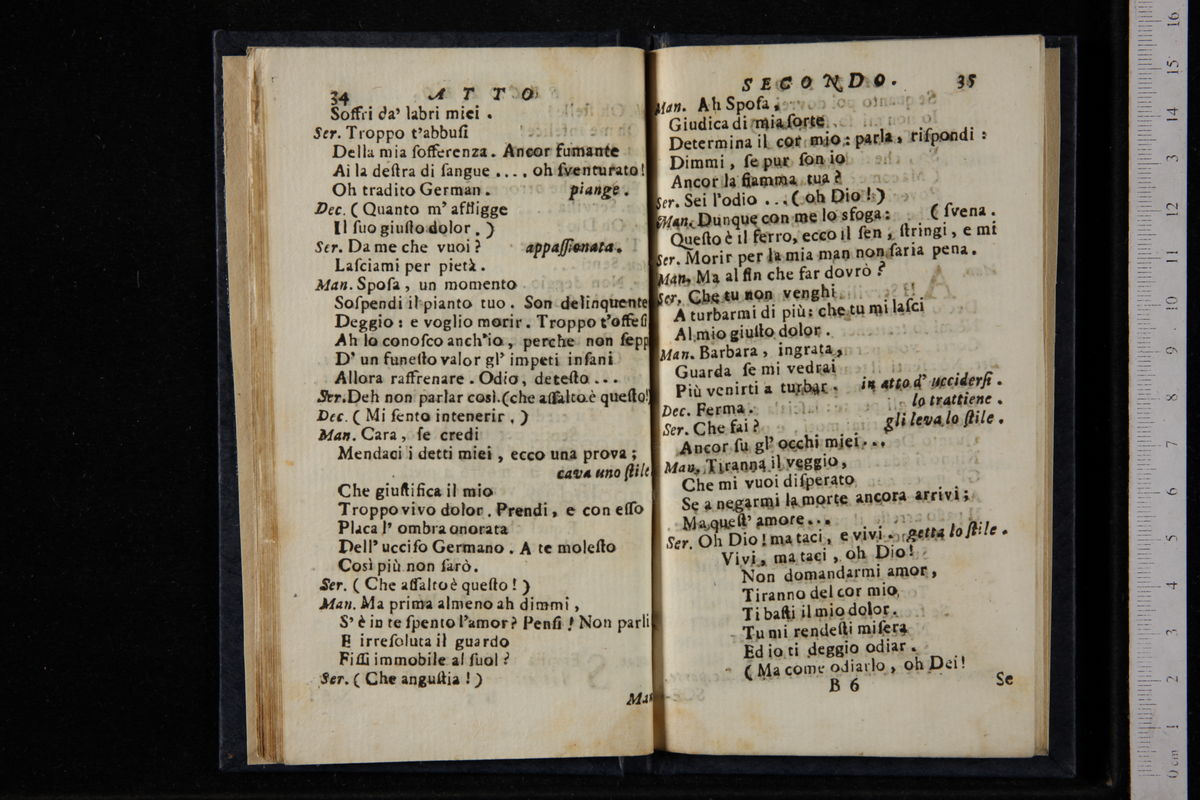 34 ATTO
Soffri da' labri miei .
Ser. Troppo t'abbusi
Della mia sofferenza. Ancor fumante
Ai la destra di sangue .... oh sventurato!
Oh tradito German . piange .
Dec. ( Quanto m' affligge
Il suo giusto dolor . )
Ser. Da me che vuoi ? appassionata .
Lasciami per pietà .
Man. Sposa , un momento
Sospendi il pianto tuo . Son delinquente
Deggio : e voglio morir . Troppo t'offesi
Ah lo conosco anch'io , perche non sepp
D' un funesto valor gl' impeti insani
Allora raffrenare . Odio, detesto ...
Ser. Deh non parlar così. (che assalto è questo!)
Dec. ( Mi sento intenerir . )
Man. Cara , se credi
Mendaci i detti miei , ecco una prova ;
cava uno stile
Che giustifica il mio
Troppo vivo dolor . Prendi , e con esso
Placa l' ombra onorata
Dell' ucciso Germano . A te molesto
Così più non sarò .
Ser. ( Che assalto è questo ! )
Man. Ma prima almeno ah dimmi ,
S' è in te spento l'amor ? Pensi ! Non parli
E irresoluta il guardo
Fissi immobile al suol ?
Ser. ( Che angustia ! )
Man
SECONDO. 35
Man. Ah Sposa ,
Giudica di mia sorte
Determina il cor mio : parla , rispondi :
Dimmi , se pur son io
Ancor la fiamma tua ?
Ser. Sei l'odio ...( oh Dio ! )
Man. Dunque con me lo sfoga : ( svena .
Questo è il ferro, ecco il sen , stringi , e mi
Ser. Morir per la mia man non saria pena .
Man. Ma al fin che far dovrò ?
Ser. Che tu non venghi
A turbarmi di più : che tu mi lasci
Al mio giusto dolor .
Man. Barbara , ingrata ,
Guarda se mi vedrai
Più venirti a turbar . in atto d' uccidersi .
Dec. Ferma . lo trattiene .
Ser. Che fai ? gli leva lo stile .
Ancor su gl' occhi miei ...
Man. Tiranna il veggio ,
Che mi vuoi disperato
Se a negarmi la morte ancora arrivi ;
Ma quest' amore ...
Ser. Oh Dio ! ma taci , e vivi . getta lo stile .
Vivi , ma taci , oh Dio !
Non domandarmi amor ,
Tiranno del cor mio
Ti basti il mio dolor .
Tu mi rendesti misera
Ed io ti deggio odiar .
( Ma come odiarlo , oh Dei !
B 6 Se